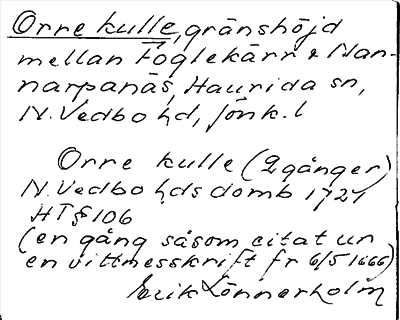 Orre kulle, gränshöjd
mellan Foglekärr & Nan-
narpanäs, Haurida sn,
N. Vedbo hd, Jönk. l
Orre kulle (2 gånger)
N. Vedbo hds domb 1727
HT § 106
(en gång såsom citat ur
en vittnesskrift fr 6/5 1666)
Erik Lönnerholm